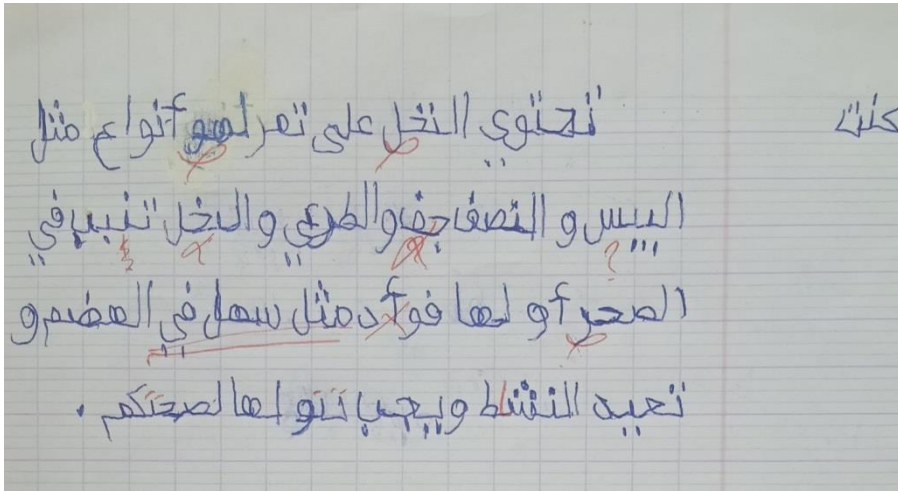 كنت تحتوي النخل على تمر لهو أنواع مثل
اليبس و النصف جف والطري و النخل تنبب في
الصحر أو لها فوأد مثل سهل في الهضم و
تعيد النشاط ويجب تتولها لصحتكم .